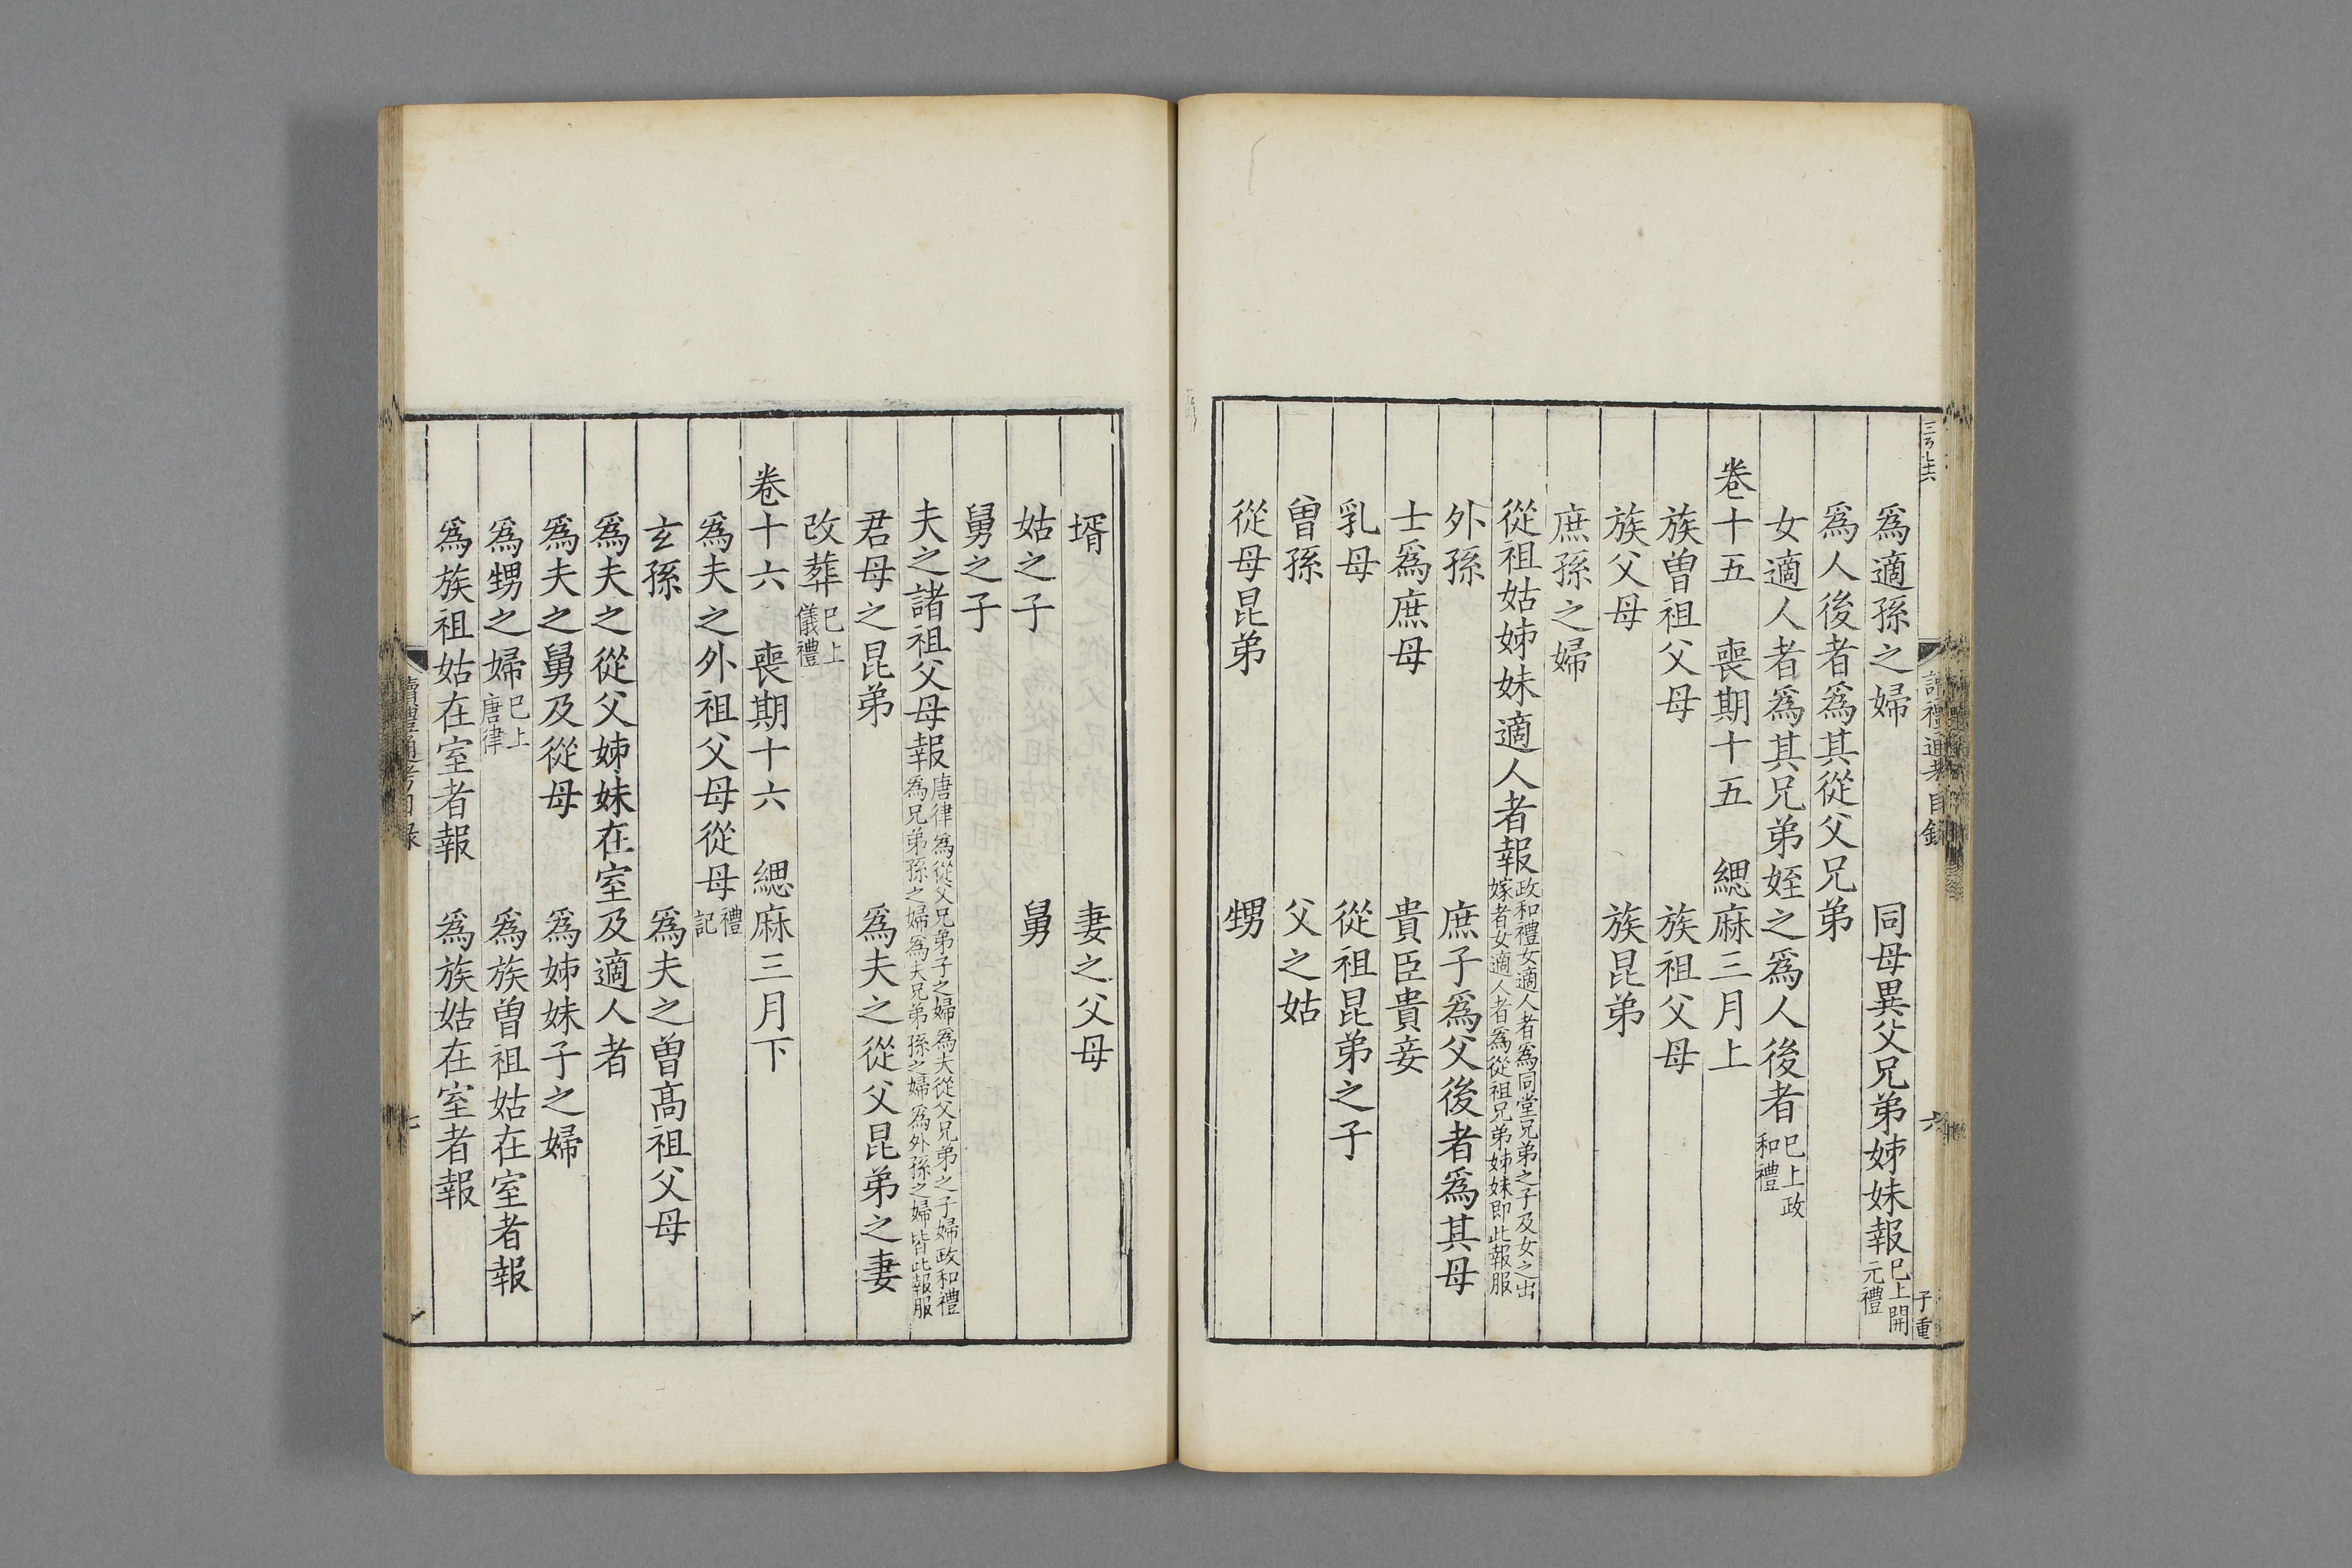 爲適孫之婦　同母異父兄弟姊妹報巳上開元禮
爲人後者爲其從父兄弟
女適人者爲其兄弟姪之爲人後者巳上政和禮
卷十五　喪期十五　緦麻三月上
族曾祖父母　族祖父母
族父母　族昆弟
庶孫之婦
從祖姑姊妹適人者報政和禮女適人者爲同堂兄弟之子及女之出嫁者女適人者爲從祖兄弟姊妹即此報服
外孫　庶子爲父後者爲其母
士爲庶母　貴臣貴妾
乳母　從祖昆弟之子
曾孫　父之姑
從母昆弟　甥
讀禮通考目錄
六
子重
壻　妻之父母
姑之子　舅
舅之子
夫之諸祖父母報唐律爲從父兄弟子之婦爲夫從父兄弟之子婦政和禮爲兄弟孫之婦爲夫兄弟孫之婦爲外孫之婦皆此報服
君母之昆弟　爲夫之從父昆弟之妻
改葬巳上儀禮
卷十六　喪期十六　緦麻三月下
爲夫之外祖父母從母禮記
玄孫　爲夫之曾高祖父母
爲夫之從父姊妹在室及適人者
爲夫之舅及從母　爲姊妹子之婦
爲甥之婦巳上唐律　爲族曾祖姑在室者報
爲族祖姑在室者報　爲族姑在室者報
讀禮通考目録